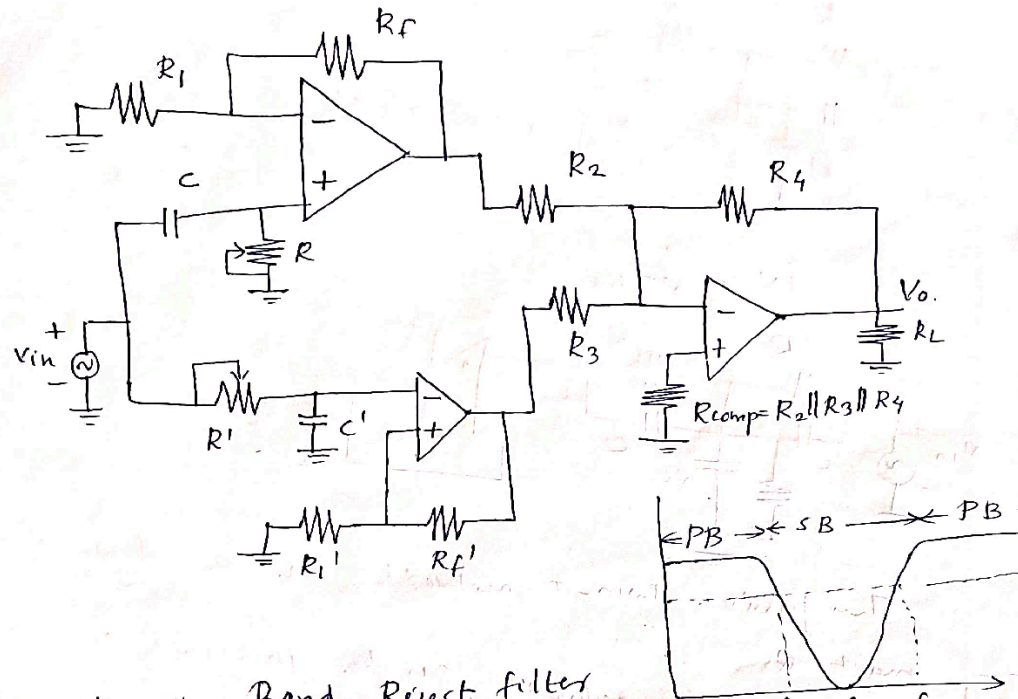 Rf
R1
−
+
C
R
R2
R4
+
Vin
−
R3
−
+
Vo.
RL
R'
C'
−
+
Rcomp= R2||R3||R4
R1'
Rf'
PB
SB
PB
Band Reject filter